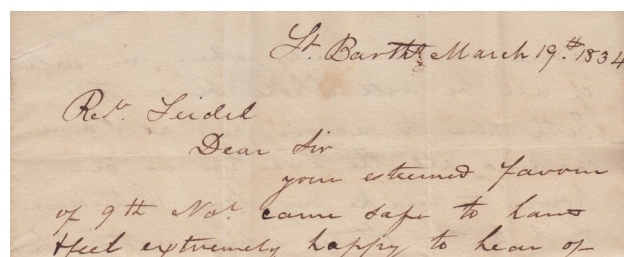 St. Barths March 19th 1834
Revd. Seidel
Dear Sir
your esteemed favour
of 9th Novr. came safe to hand
& feel extremely happy to hear of